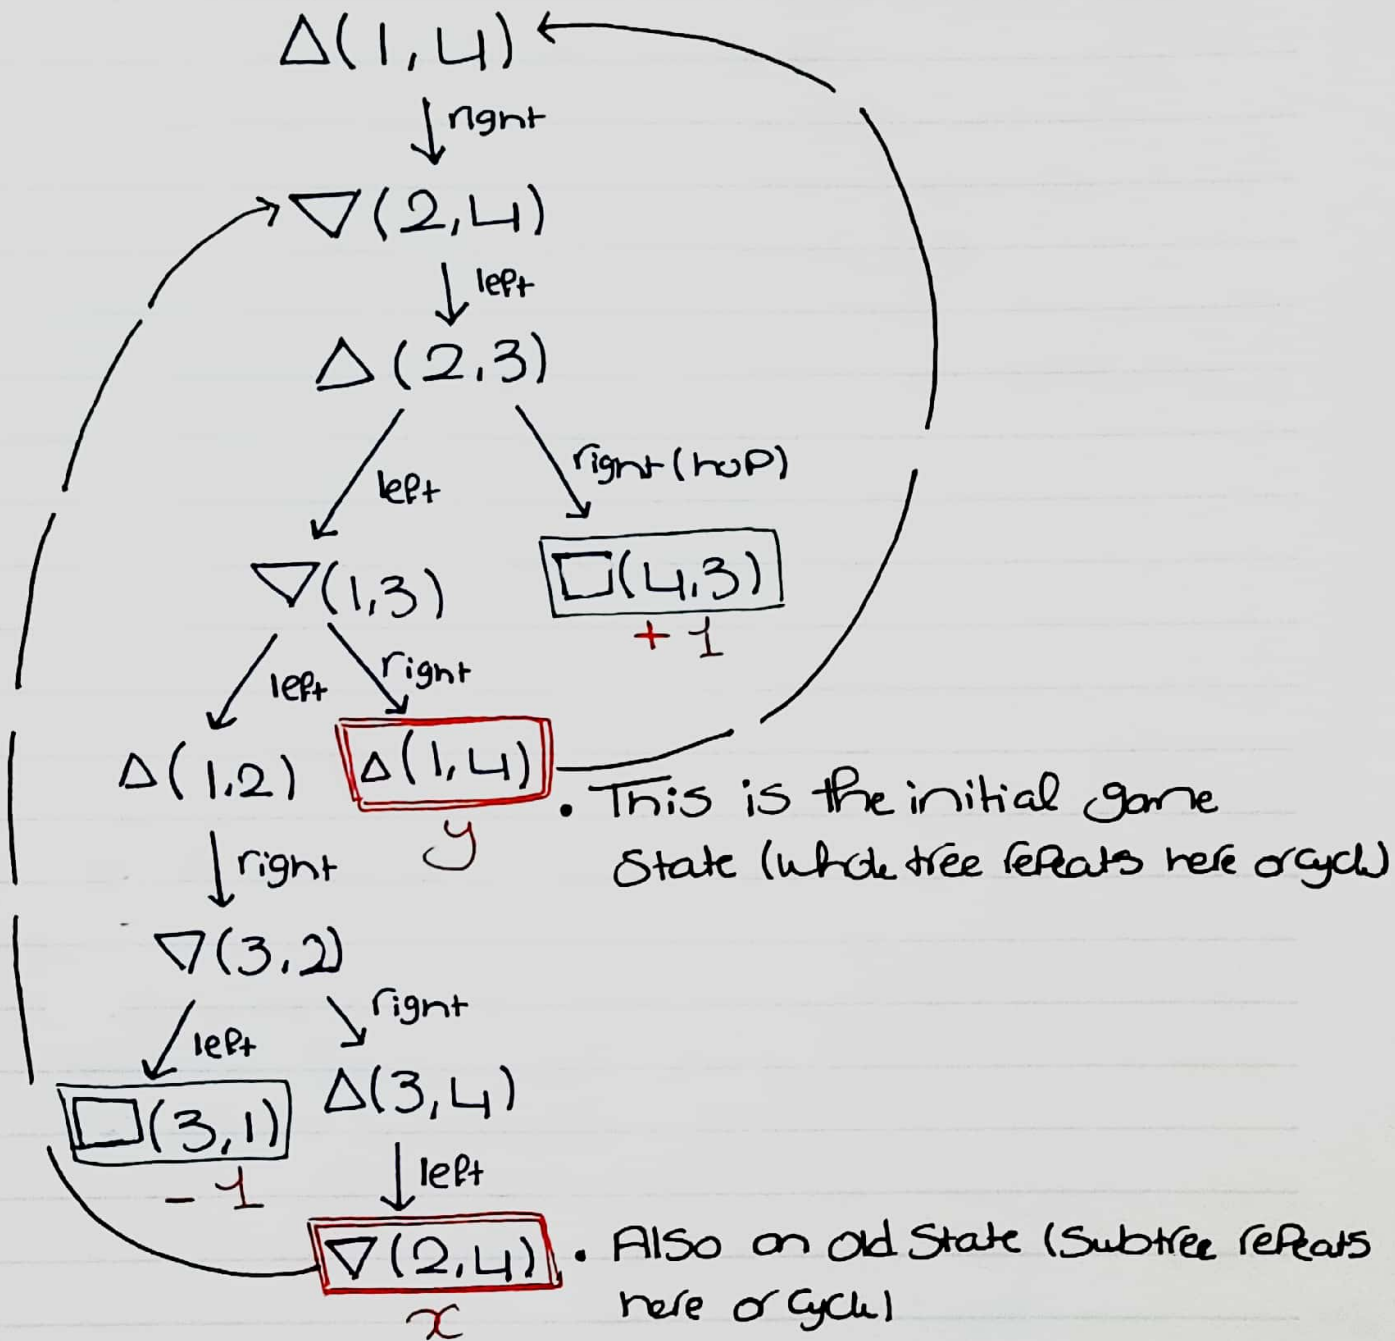 △(1,4)
right
▽(2,4)
left
△(2,3)
left
right (hop)
▽(1,3)
□(4,3)
+1
left
right
△(1,2)
△(1,4)
y
. This is the initial game
State (whole tree repeats here or cycle)
right
▽(3,2)
left
right
□(3,1)
-1
△(3,4)
left
▽(2,4)
x
. Also an old State (Subtree repeats
here or cycle)